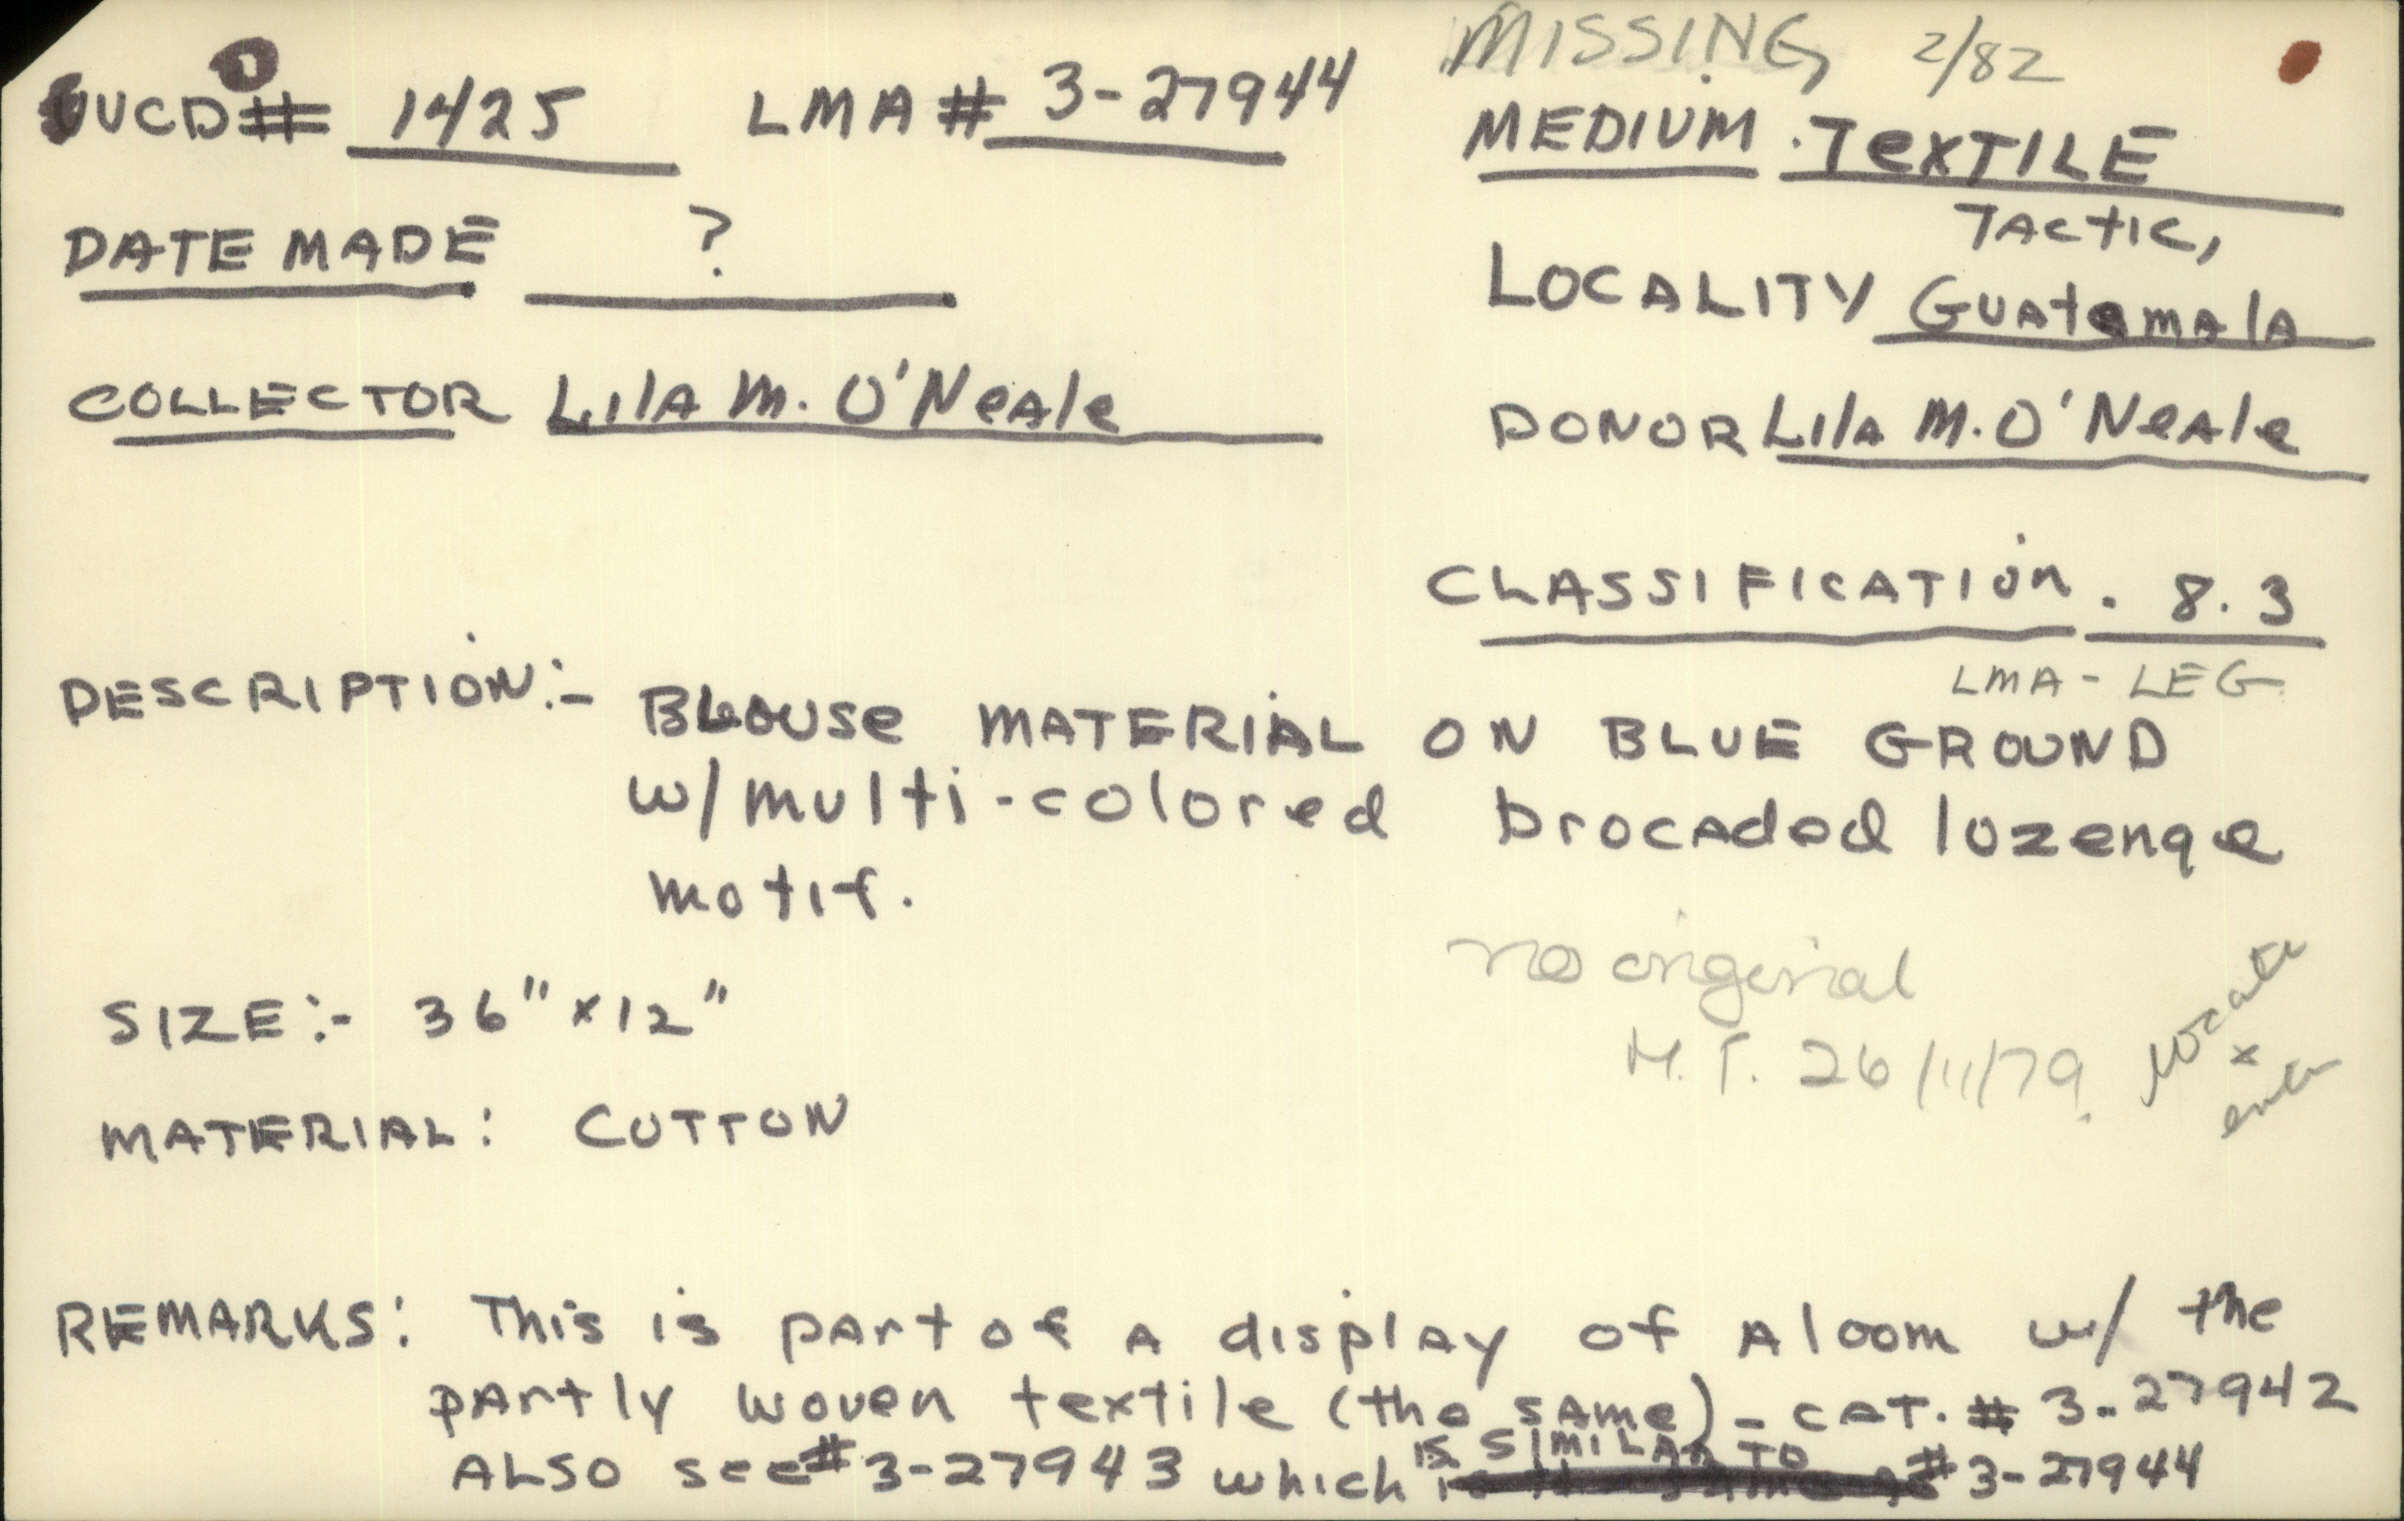 MISSING 2/82
UCD# 1425 LMA # 3-27944
MEDIUM . TeXTILE
DATE MADE ?
LOCALITY TACtIC,
GUAtemAlA
COLLECTOR LilA M. O'NeAle
DONOR LilA M. O'NeAle
CLASSIFICATION . 8.3
LMA - LEG
DESCRIPTION:- BLOUSe MATERIAL ON BLUE GROUND
w/ multi-colored brocAded lozenge
motif.
no original
M.T. 26/11/79.
SIZE:- 36" x 12"
MATERIAL: COTTON
REMARKS: This is pArt of A displAy of A loom w/ the
pArtly woven textile (the sAme) - CAT. # 3-27942
IS SIMILAR TO
ALSO see # 3-27943 which # 3-27944